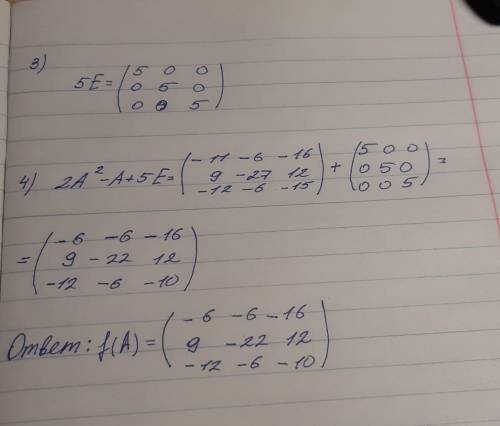 3)
5E = (5 0 0
0 5 0
0 0 5)
4) 2A² - A + 5E = (-11 -6 -16
9 -27 12
-12 -6 -15) + (5 0 0
0 5 0
0 0 5) =
= (-6 -6 -16
9 -22 12
-12 -6 -10)
Ответ: f(A) = (-6 -6 -16
9 -22 12
-12 -6 -10)